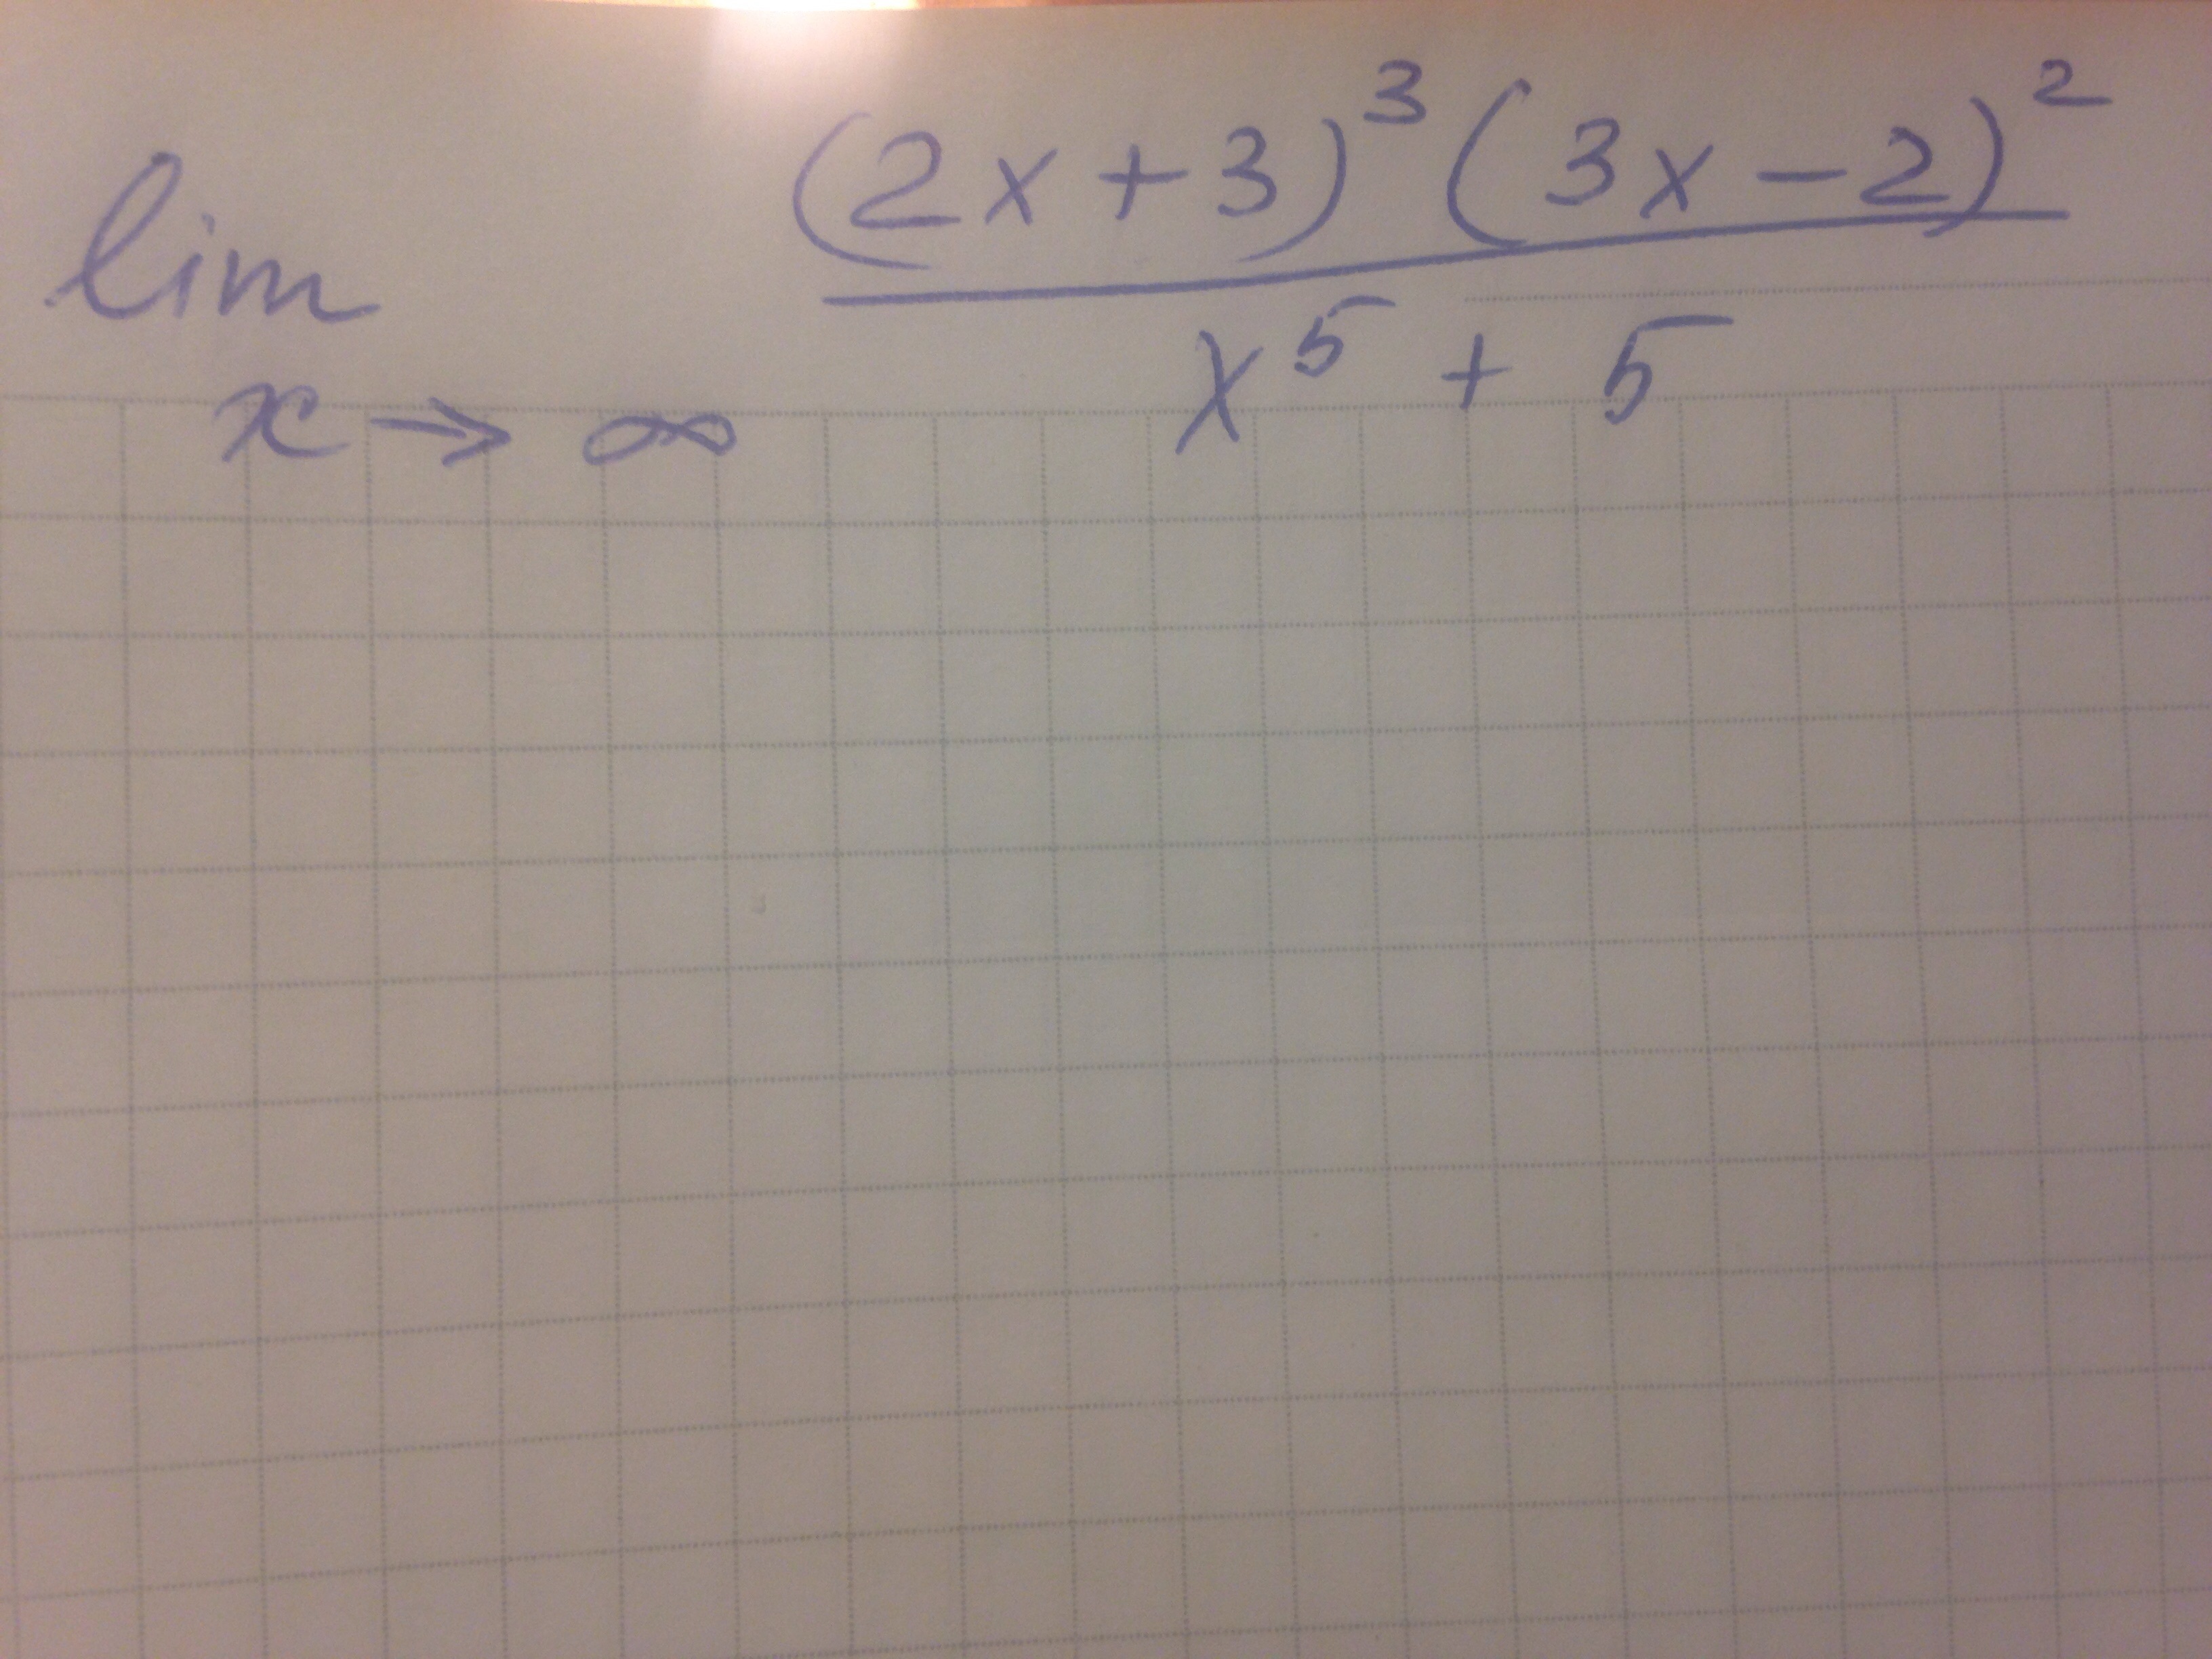 lim x → ∞ (2x + 3)³ (3x − 2)² / x⁵ + 5